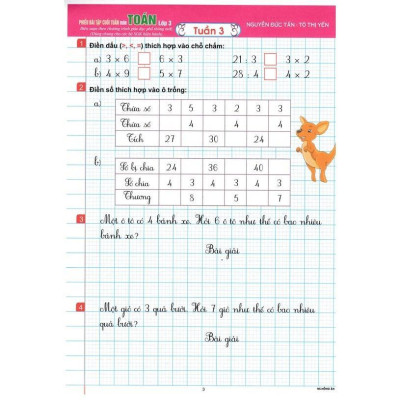 PHIẾU BÀI TẬP CUỐI TUẦN môn TOÁN Lớp 3
Tuần 3
NGUYỄN ĐỨC TẤN - TÔ THỊ YẾN
1 Điền dấu (>, <, =) thích hợp vào chỗ chấm:
a) 3 × 6 6 × 3 21 : 3 3 × 2
b) 4 × 9 5 × 7 28 : 4 4 × 2
2 Điền số thích hợp vào ô trống:
a)
Thừa số 3 5 3 2 3 3
Thừa số 4 4 4
Tích 27 30 24
b)
Số bị chia 24 36 40
Số chia 4 3 4 3 4 3
Thương 8 5 7
3 Một ô tô có 4 bánh xe. Hỏi 6 ô tô như thế có bao nhiêu
bánh xe?
Bài giải
4 Một giỏ có 3 quả bưởi. Hỏi 7 giỏ như thế có bao nhiêu
quả bưởi?
Bài giải